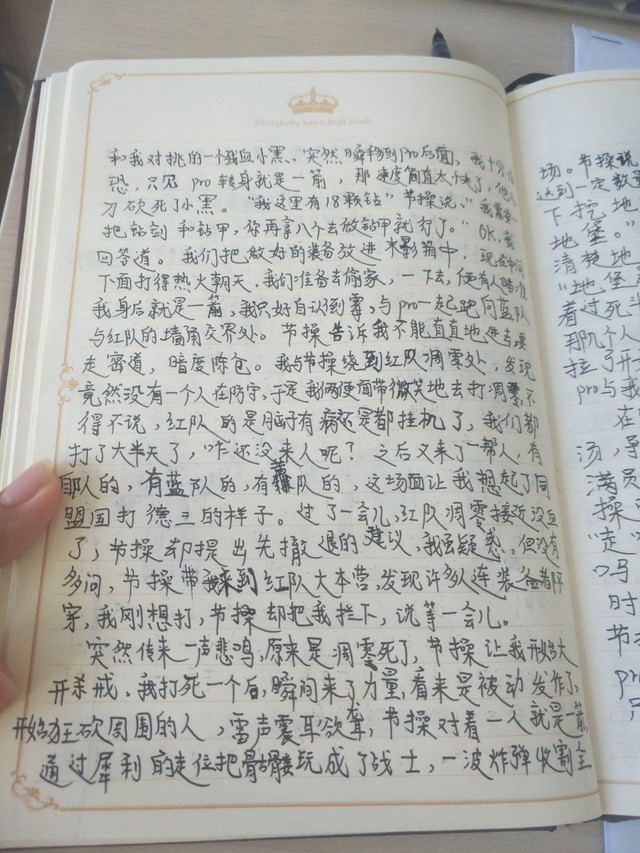 Everybody has a high mind.
和我对挑的一个残血小黑、突然瞬移到pro后面，我十分
恐，只见 pro 转身就是一箭，那速度简直太快了，他
刀砍死了小黑。"我这里有18颗钻"节操说，"我需要
把钻剑和钻甲，你再拿八个去做钻甲就行了。" OK，我
回答道。我们把做好的装备放进末影箱中，现在中间
下面打得热火朝天，我们准备去偷家，一下去，便有人瞄准
我身后就是一箭，我只好自认倒霉，与pro一起跑向蓝队
与红队的墙角交界处。节操告诉我不能直直地进去，要
走密道，暗度陈仓。我与节操绕到红队凋零处，发现
竟然没有一个人在防守，于是我俩便面带微笑地去打凋零，不
得不说，红队的是脑子有病还是都挂机了，我们都
打了大半天了，咋还没来人呢？之后又来了一帮人，有
队的，有蓝队的，有队的，这场面让我想起了同
盟国打德三的样子。过了一会儿，红队凋零接近没血
了，节操却提出先撤退的建议，我虽疑惑，但没有
多问，节操带我来到红队大本营，发现许多人连装备都不
穿，我刚想打，节操却把我拦下，说等一会儿。
突然传来一声悲鸣，原来是凋零死了，节操让我开始大
开杀戒，我打死一个后，瞬间来了力量，看来是被动发作了，
开始狂砍周围的人，雷声震耳欲聋，节操对着一人就是一箭，
通过犀利的走位把骷髅玩成了战士，一波炸弹收割全
场。节操说
达到一定数
下挖地
地堡。"
清楚地
"地堡
着过死
那几个人
拉了开
pro与我
在
汤，
满员
操
"走"
吗
时
节
pr